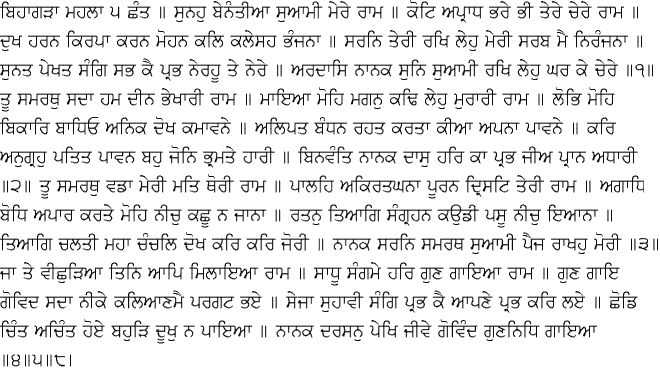 ਬਿਹਾਗੜਾ ਮਹਲਾ ੫ ਛੰਤ ॥ ਸੁਨਹੁ ਬੇਨੰਤੀਆ ਸੁਆਮੀ ਮੇਰੇ ਰਾਮ ॥ ਕੋਟਿ ਅਪ੍ਰਾਧ ਭਰੇ ਭੀ ਤੇਰੇ ਚੇਰੇ ਰਾਮ ॥
ਦੁਖ ਹਰਨ ਕਿਰਪਾ ਕਰਨ ਮੋਹਨ ਕਲਿ ਕਲੇਸਹ ਭੰਜਨਾ ॥ ਸਰਨਿ ਤੇਰੀ ਰਖਿ ਲੇਹੁ ਮੇਰੀ ਸਰਬ ਮੈ ਨਿਰੰਜਨਾ ॥
ਸੁਨਤ ਪੇਖਤ ਸੰਗਿ ਸਭ ਕੈ ਪ੍ਰਭ ਨੇਰਹੂ ਤੇ ਨੇਰੇ ॥ ਅਰਦਾਸਿ ਨਾਨਕ ਸੁਨਿ ਸੁਆਮੀ ਰਖਿ ਲੇਹੁ ਘਰ ਕੇ ਚੇਰੇ ॥੧॥
ਤੂ ਸਮਰਥੁ ਸਦਾ ਹਮ ਦੀਨ ਭੇਖਾਰੀ ਰਾਮ ॥ ਮਾਇਆ ਮੋਹਿ ਮਗਨੁ ਕਢਿ ਲੇਹੁ ਮੁਰਾਰੀ ਰਾਮ ॥ ਲੋਭਿ ਮੋਹਿ
ਬਿਕਾਰਿ ਬਾਧਿਓ ਅਨਿਕ ਦੋਖ ਕਮਾਵਨੇ ॥ ਅਲਿਪਤ ਬੰਧਨ ਰਹਤ ਕਰਤਾ ਕੀਆ ਅਪਨਾ ਪਾਵਨੇ ॥ ਕਰਿ
ਅਨੁਗ੍ਰਹੁ ਪਤਿਤ ਪਾਵਨ ਬਹੁ ਜੋਨਿ ਭ੍ਰਮਤੇ ਹਾਰੀ ॥ ਬਿਨਵੰਤਿ ਨਾਨਕ ਦਾਸੁ ਹਰਿ ਕਾ ਪ੍ਰਭ ਜੀਅ ਪ੍ਰਾਨ ਅਧਾਰੀ
॥੨॥ ਤੂ ਸਮਰਥੁ ਵਡਾ ਮੇਰੀ ਮਤਿ ਥੋਰੀ ਰਾਮ ॥ ਪਾਲਹਿ ਅਕਿਰਤਘਨਾ ਪੂਰਨ ਦ੍ਰਿਸਟਿ ਤੇਰੀ ਰਾਮ ॥ ਅਗਾਧਿ
ਬੋਧਿ ਅਪਾਰ ਕਰਤੇ ਮੋਹਿ ਨੀਚੁ ਕਛੂ ਨ ਜਾਨਾ ॥ ਰਤਨੁ ਤਿਆਗਿ ਸੰਗ੍ਰਹਨ ਕਉਡੀ ਪਸੂ ਨੀਚੁ ਇਆਨਾ ॥
ਤਿਆਗਿ ਚਲਤੀ ਮਹਾ ਚੰਚਲਿ ਦੋਖ ਕਰਿ ਕਰਿ ਜੋਰੀ ॥ ਨਾਨਕ ਸਰਨਿ ਸਮਰਥ ਸੁਆਮੀ ਪੈਜ ਰਾਖਹੁ ਮੋਰੀ ॥੩॥
ਜਾ ਤੇ ਵੀਛੁੜਿਆ ਤਿਨਿ ਆਪਿ ਮਿਲਾਇਆ ਰਾਮ ॥ ਸਾਧੂ ਸੰਗਮੇ ਹਰਿ ਗੁਣ ਗਾਇਆ ਰਾਮ ॥ ਗੁਣ ਗਾਇ
ਗੋਵਿਦ ਸਦਾ ਨੀਕੇ ਕਲਿਆਣਮੈ ਪਰਗਟ ਭਏ ॥ ਸੇਜਾ ਸੁਹਾਵੀ ਸੰਗਿ ਪ੍ਰਭ ਕੈ ਆਪਣੇ ਪ੍ਰਭ ਕਰਿ ਲਏ ॥ ਛੋਡਿ
ਚਿੰਤ ਅਚਿੰਤ ਹੋਏ ਬਹੁੜਿ ਦੂਖੁ ਨ ਪਾਇਆ ॥ ਨਾਨਕ ਦਰਸਨੁ ਪੇਖਿ ਜੀਵੇ ਗੋਵਿੰਦ ਗੁਣਨਿਧਿ ਗਾਇਆ
॥੪॥੫॥੮।